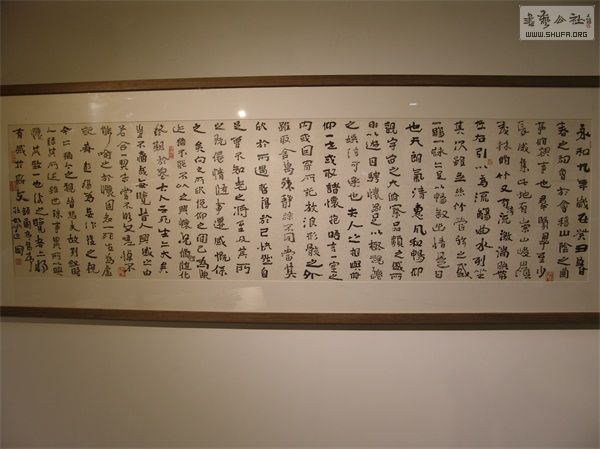 書藝公社
WWW.SHUFA.ORG
永和九年歲在癸丑暮
春之初會於會稽山陰之蘭
亭脩禊事也群賢畢至少
長咸集此地有崇山峻嶺
茂林脩竹又有清流激湍暎帶
左右引以為流觴曲水列坐
其次雖無絲竹管弦之盛
一觴一詠亦足以暢敘幽情是日
也天朗氣清惠風和暢仰
觀宇宙之大俯察品類之盛所
以遊目騁懷足以極視聽
之娛信可樂也夫人之相與俯
仰一世或取諸懷抱晤言一室之
內或因寄所託放浪形骸之外
雖取舍萬殊靜躁不同當其
欣於所遇暫得於己快然自
足不知老之將至及其所
之既倦情隨事遷感慨係
之矣向之所欣俛仰之間已為陳
迹猶不能不以之興懷況脩短隨化
終期於盡古人云死生亦大矣
豈不痛哉每攬昔人興感之由
若合一契未嘗不臨文嗟悼不
能喻之於懷固知一死生為虛
誕齊彭殤為妄作後之視
今亦猶今之視昔悲夫故列敘時
人錄其所述雖世殊事異所以興
懷其致一也後之覽者亦將
有感於斯文